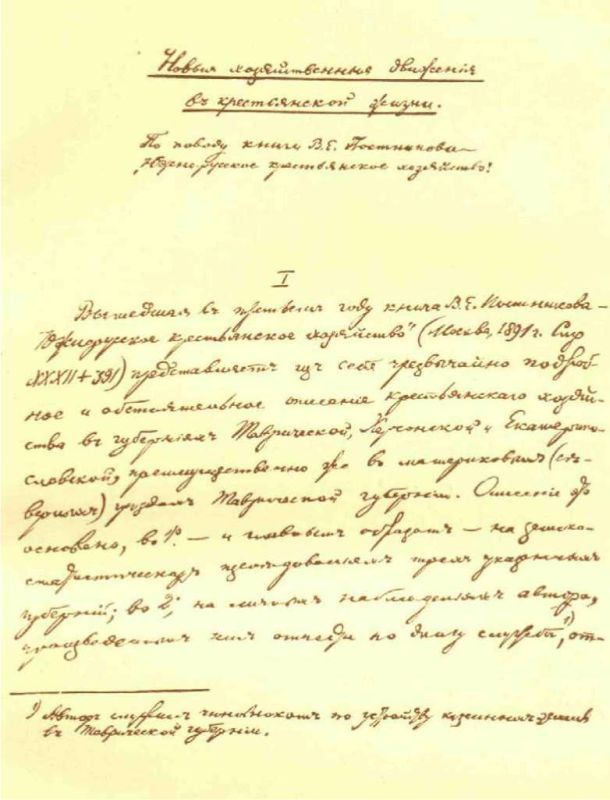 Новыя хозяйственныя движенія
въ крестьянской жизни.
По поводу книги В.Е. Постникова —
„Южно-русское крестьянское хозяйство"
I
Вышедшая въ третьемъ году книга В.Е. Постникова —
„Южнорусское крестьянское хозяйство" (Москва, 1891 г. Стр.
XXXII+391) представляетъ изъ себя чрезвычайно подроб-
ное и обстоятельное описаніе крестьянскаго хозяй-
ства въ губерніяхъ Таврической, Херсонской и Екатерино-
славской, преимущественно же въ материковыхъ (сѣ-
верныхъ) уѣздахъ Таврической губерніи. Описаніе это
основано, во 1º. — и главнымъ образомъ — на земско-
статистическихъ изслѣдованіяхъ трехъ указанныхъ
губерній; во 2º, на личныхъ наблюденіяхъ автора,
произведенныхъ имъ отчасти по долгу службы¹⁾, от-
¹⁾ Авторъ служилъ чиновникомъ по устройству казенныхъ земель
въ Таврической губерніи.